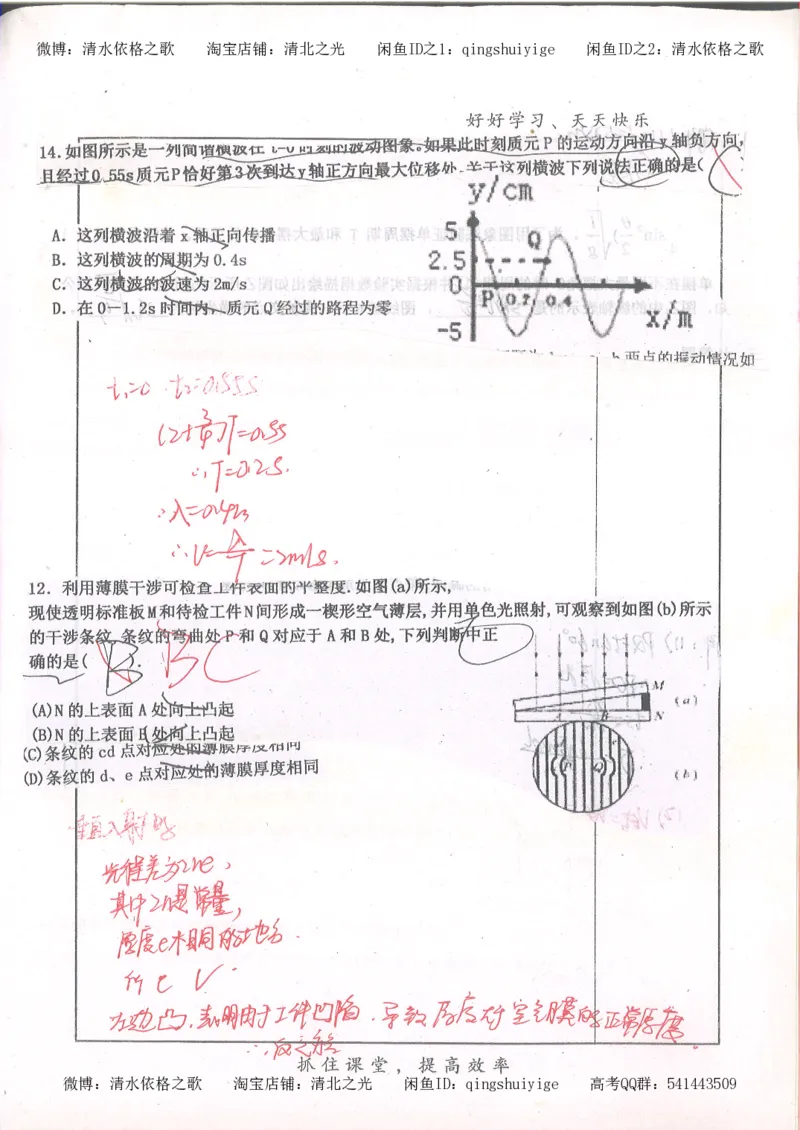 微博：清水依格之歌 淘宝店铺：清北之光 闲鱼ID之1：qingshuiyige 闲鱼ID之2：清水依格之歌
好好学习、天天快乐
14.如图所示是一列简谐横波在 t=0 时刻的波动图象。如果此时刻质元 P 的运动方向沿 y 轴负方向,
且经过0.55s质元P恰好第3次到达y轴正方向最大位移处.关于这列横波下列说法正确的是(
A. 这列横波沿着 x 轴正向传播
B. 这列横波的周期为 0.4s
C. 这列横波的波速为 2m/s
D. 在 0—1.2s 时间内、质元 Q 经过的路程为零
y/cm
5
2.5
0
-5
Q
P
0.2
0.4
x/m
两点的振动情况如
t₁=0 t₂=0.55s
(2+3/4)T=0.55
∴T=0.2s.
∴λ=0.4m
∴V=λ/T=2m/s.
12. 利用薄膜干涉可检查工件表面的平整度.如图(a)所示,
现使透明标准板M和待检工件N间形成一楔形空气薄层,并用单色光照射,可观察到如图(b)所示
的干涉条纹,条纹的弯曲处 P 和 Q 对应于 A 和 B 处,下列判断中正
确的是( B ). BC
(A)N 的上表面 A 处向上凸起
(B)N 的上表面 B 处向上凸起
(C)条纹的 cd 点对应处的薄膜厚度相同
(D)条纹的 d、e 点对应处的薄膜厚度相同
M
N
A
B
(a)
P
Q
(b)
垂直入射时
光程差为2ne,
其中2n是常量,
厚度e相同的地方
所 C √
左边凸,表明由于工件凹陷,导致厚度对空气膜的正常厚度
∴反之亦
抓住课堂，提高效率
微博：清水依格之歌 淘宝店铺：清北之光 闲鱼ID：qingshuiyige 高考QQ群：541443509